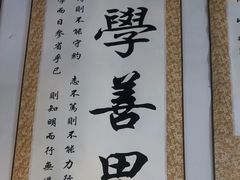 學善
則不能守約 志不篤則不能力行
而日參省乎己 則知明而行無過